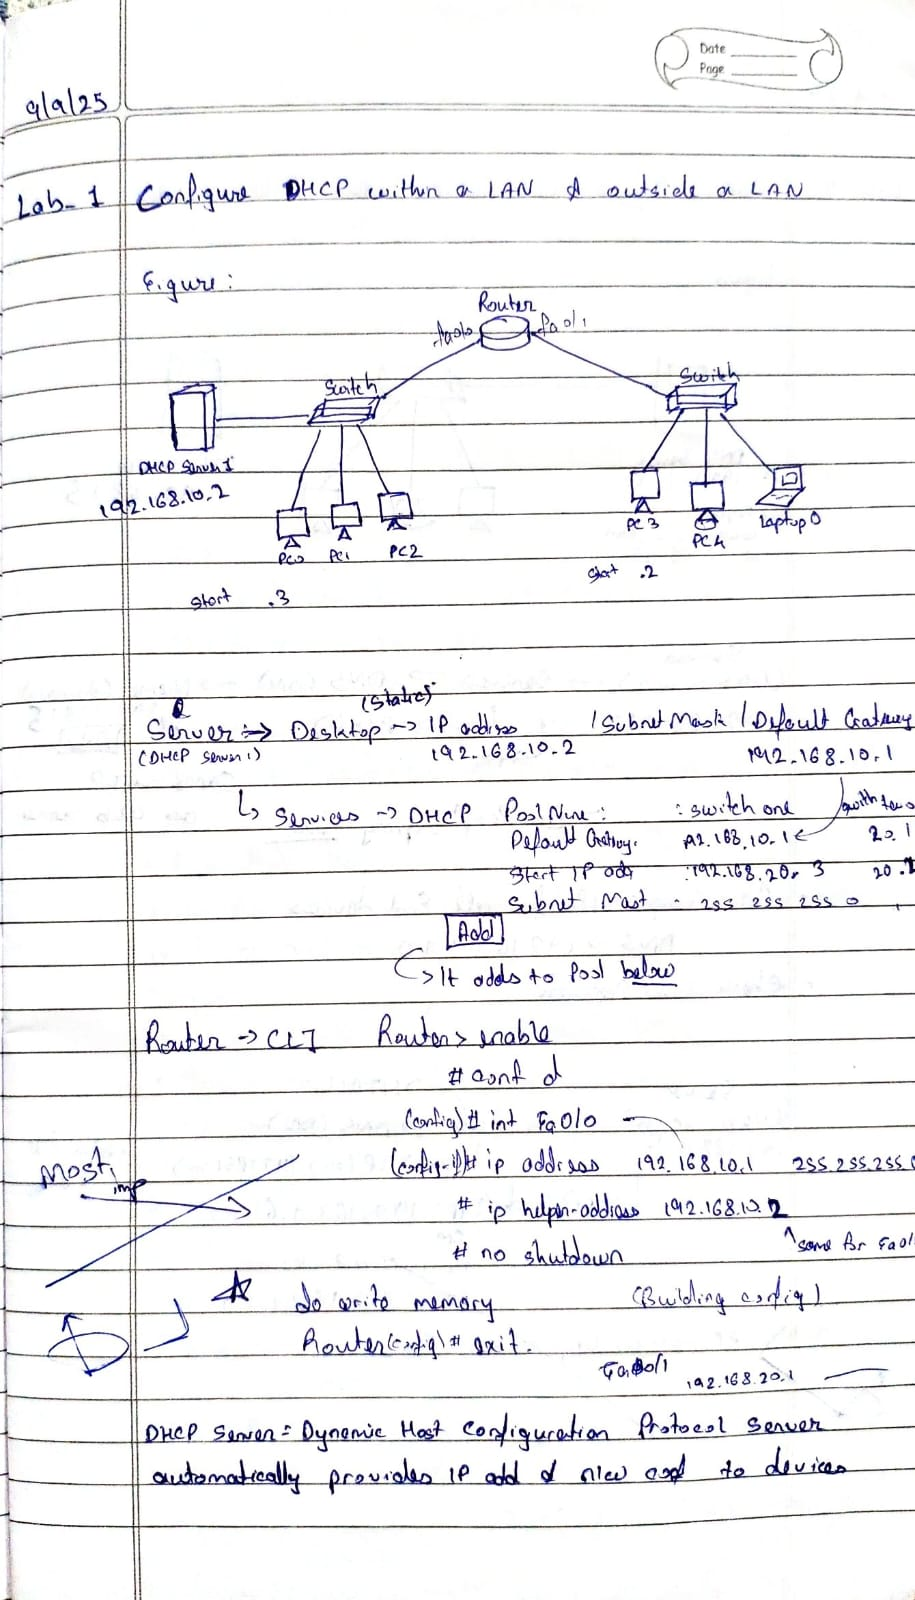 Date
Page
9/9/25
Lab-1 Configure DHCP within a LAN & outside a LAN
Figure:
Router
fa0/0 fa0/1
Switch Switch
DHCP Server1
192.168.10.2
PC0 PC1 PC2
PC3 PC4 Laptop0
Start .3
Start .2
(Static)
Server => Desktop -> IP address / Subnet Mask / Default Gateway
(DHCP Server1) 192.168.10.2 192.168.10.1
Services -> DHCP : switch one
Default 192.168.10.1 20.1
Start IP : 192.168.20. 3 20.2
Subnet Mast - 255 255 255 0
Add
It adds to Pool below
Router -> CLI Router> enable
# conf
(config)# int Fa0/0
(config-if)# ip address 192.168.10.1 255.255.255.0
Most imp
# ip helper-address 192.168.10.2
# no shutdown ^same for Fa0/1
do write memory (Building config)
Router(config)# exit.
Fa0/1 192.168.20.1
DHCP Server = Dynamic Host Configuration Protocol Server
automatically provides IP add & to devices